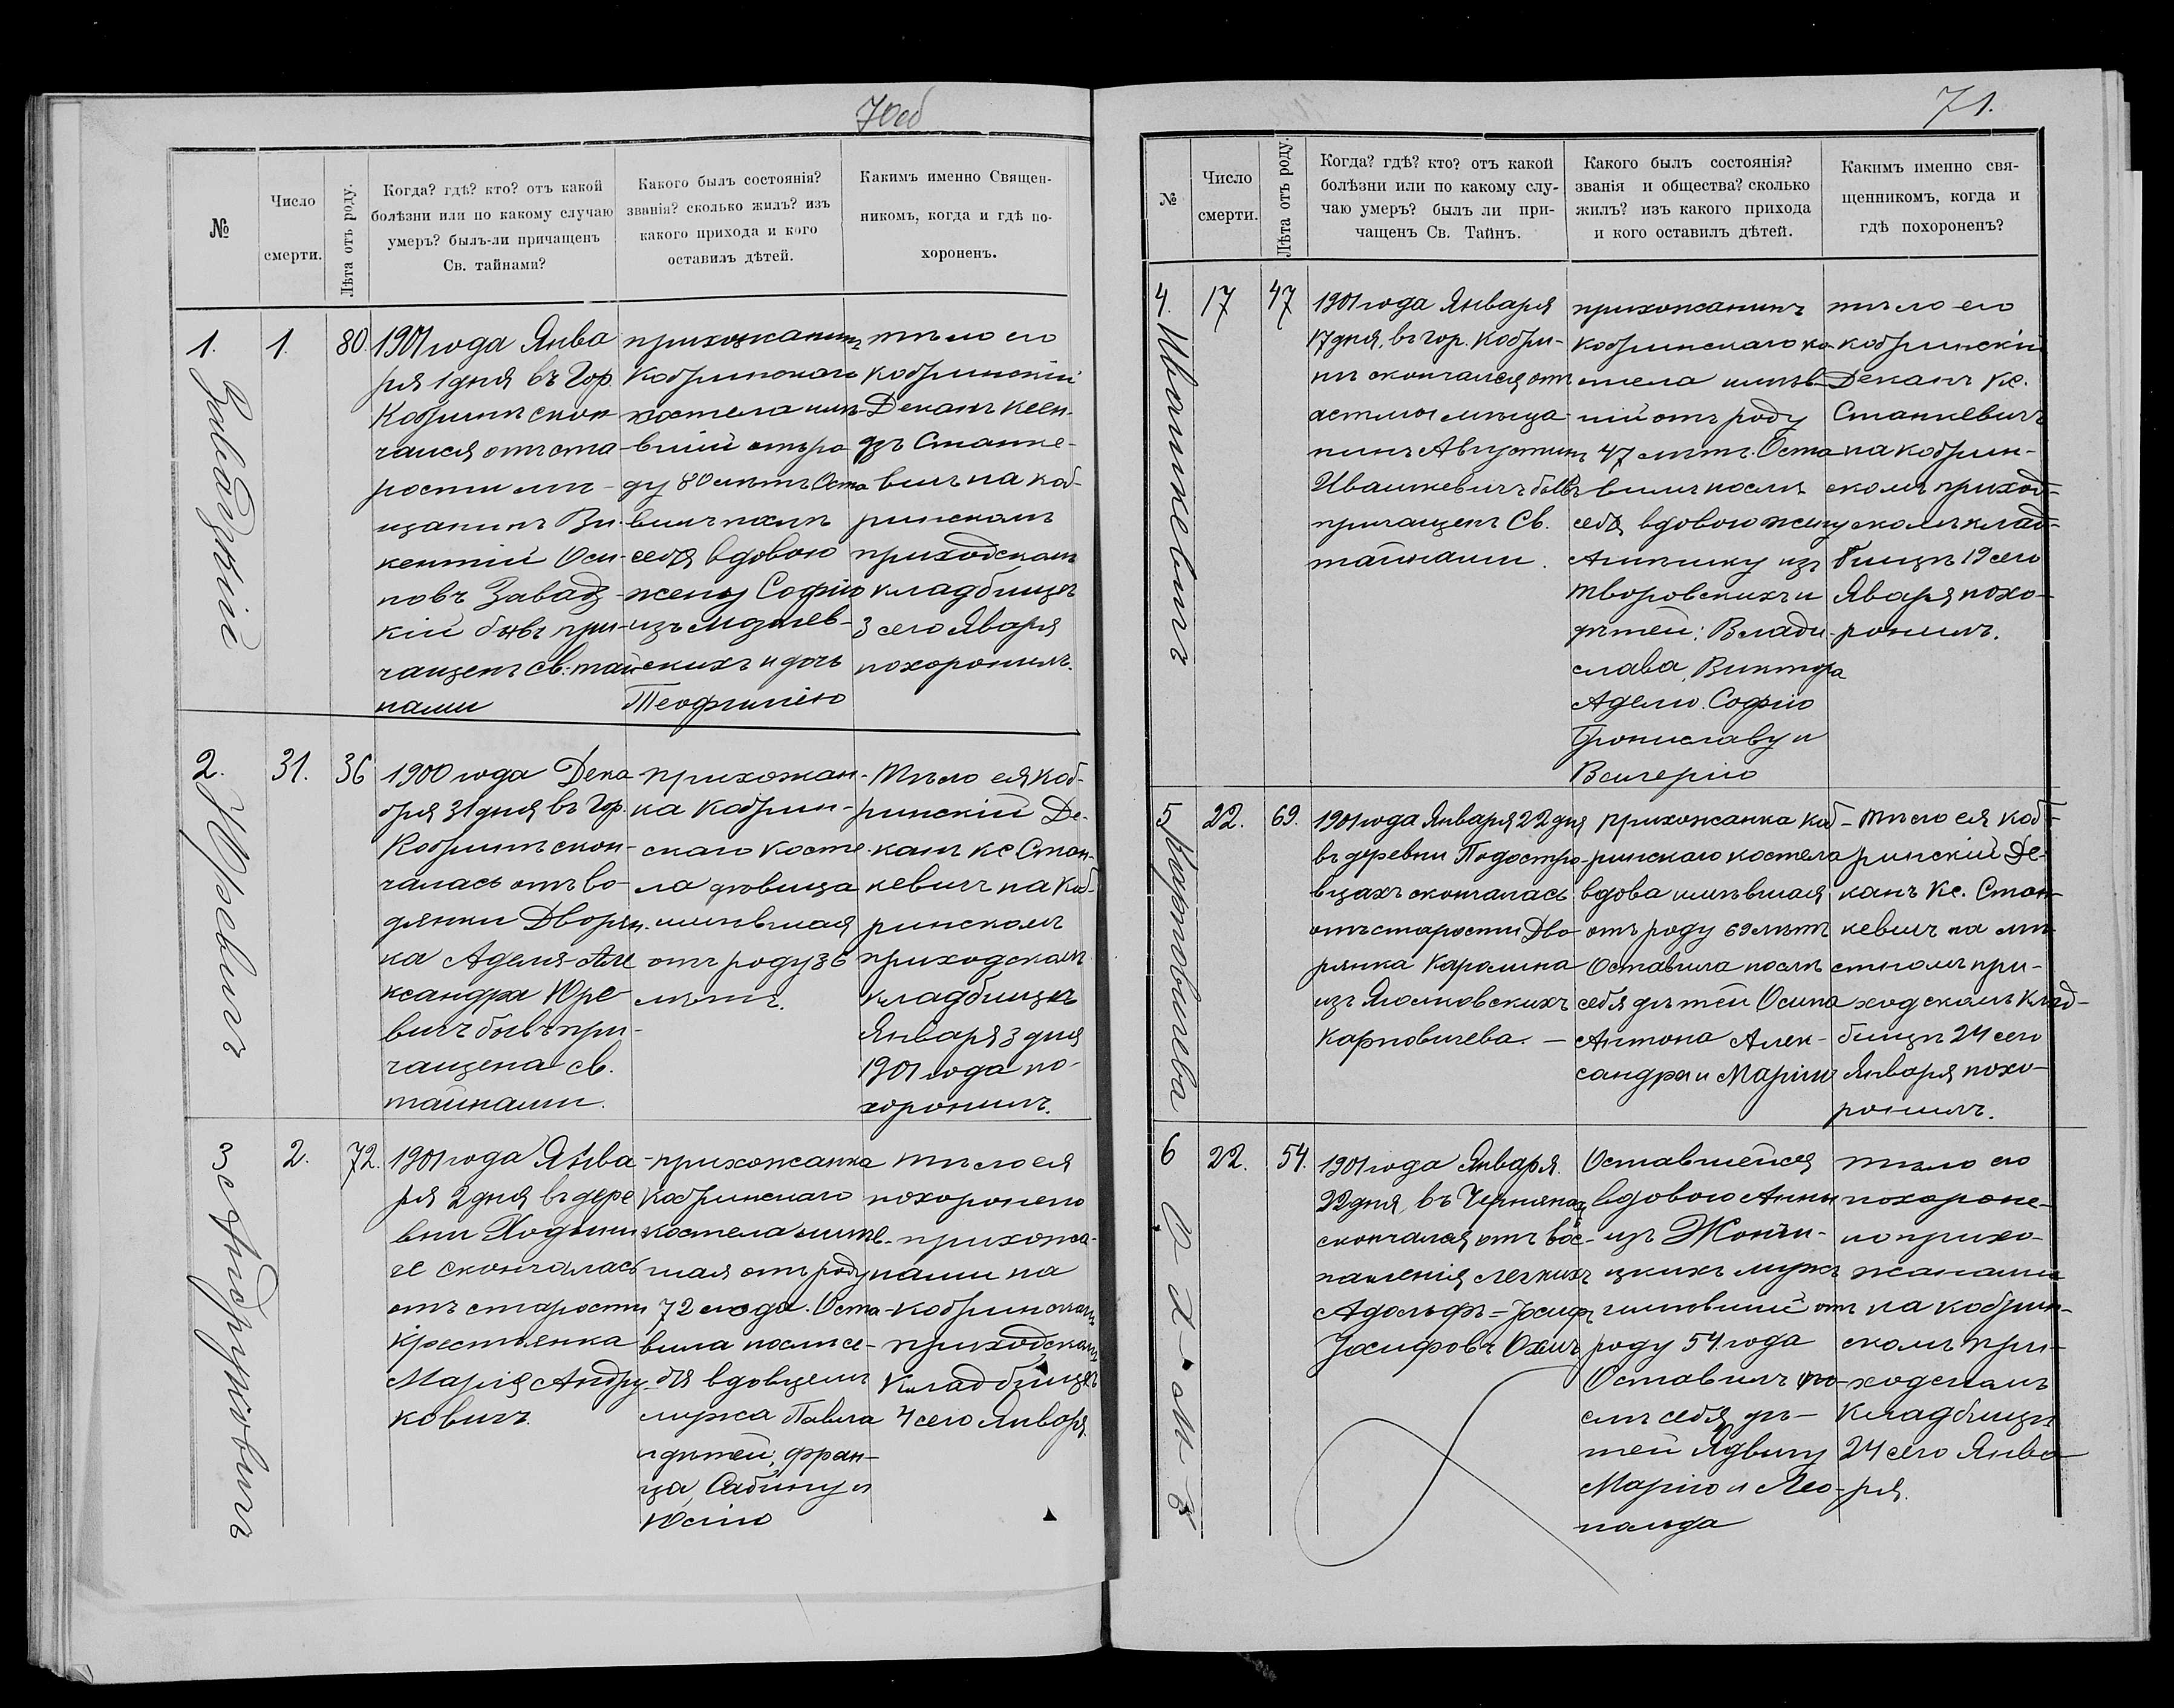 70об
№
Число
смерти.
Лѣта отъ роду.
Когда? гдѣ? кто? отъ какой
болѣзни или по какому случаю
умеръ? былъ-ли причащенъ
Св. тайнами?
Какого былъ состоянія?
званія? сколько жилъ? изъ
какого прихода и кого
оставилъ дѣтей.
Какимъ именно Священ-
никомъ, когда и гдѣ по-
хороненъ.
1.
Завадзкій
1.
80.
1901 года Янва
ря 1 дня въ Гор.
Кобринѣ скон
чался отъ ста-
рости мѣ-
щанинъ Ви-
кентій Оси-
повъ Завадз-
кій бывъ при-
чащенъ св. тай
нами
прихожанинъ
Кобринскаго
костела имѣ-
вшій отъ ро
ду 80 лѣтъ Оста
вилъ послѣ
себя вдовою
жену Софію
изъ
скихъ и дочь
Теофилію
тѣло его
Кобринскій
Деканъ ксен-
дзъ Станке-
вичъ на коб-
ринскомъ
приходскомъ
кладбищѣ
3 сего Яваря
похоронилъ.
2.
Юревичъ
31.
36
1900 года Дека-
бря 31 дня въ Гор.
Кобринѣ скон-
чалась отъ во-
дянки Дворян-
ка Аделя Але
ксандра Юре-
вичъ бывъ при-
чащена св.
тайнами.
прихожан-
ка Кобрин-
скаго Косте-
ла дѣвица
имѣвшая
отъ роду 36
лѣтъ.
Тѣло ея Коб-
ринскій Де-
канъ Кс Стан-
кевичъ на Коб-
ринскомъ
приходскомъ
кладбищѣ
Января 3 дня
1901 года по-
хоронилъ.
3
Андруковичъ
2.
72.
1901 года Янва-
ря 2 дня въ дере
вни Ходыни
че скончалась
отъ старости
Крестьянка
Марія Андру-
ковичъ.
прихожанка
Кобринскаго
костела имѣв-
шая отъ роду
72 года. Оста-
вила послѣ се-
бя вдовцемъ
мужа Павла
и дѣтей, Фран-
ца, Сабину и
Юлію
тѣло ея
похоронено
прихожа-
нами на
Кобринскомъ
приходскомъ
кладбищѣ
4 сего Января.
71.
№
Число
смерти.
Лѣта отъ роду.
Когда? гдѣ? кто? отъ какой
болѣзни или по какому слу-
чаю умеръ? былъ ли при-
чащенъ Св. Тайнъ.
Какого былъ состоянія?
званія и общества? сколько
жилъ? изъ какого прихода
и кого оставилъ дѣтей.
Какимъ именно свя-
щенникомъ, когда и
гдѣ похороненъ?
4.
Ивашкевичъ
17
47
1901 года Января
17 дня, въ гор. Кобри-
нѣ скончался отъ
астмы мѣща-
нинъ Августинъ
Ивашкевичъ бывъ
причащенъ Св.
тайнами.
прихожанинъ
Кобринскаго ко-
стела имѣв-
шій отъ роду
47 лѣтъ. Оста-
вилъ послѣ
себя вдовою жену
Антонину изъ
Творовскихъ и
дѣтей: Влади-
слава, Виктора
Аделю. Софію
Брониславу и
Валерію
тѣло его
кобринскій
Деканъ Кс.
Станкевичъ
на кобрин-
скомъ приход-
скомъ клад-
бищѣ 19 сего
Яваря похо-
ронилъ.
5
Карповичева
22.
69.
1901 года Января 22 дня
въ деревни Подостро-
вцахъ скончалась
отъ старости Дво-
рянка Каролина
изъ Ясиновскихъ
Карповичева. —
прихожанка Коб-
ринскаго костела
вдова имѣвшая
отъ роду 69 лѣтъ
Оставила послѣ
себя дѣтей Осипа
Антона Алек-
сандра и Марію
тѣло ея Коб-
ринскій Де-
канъ Кс. Стан-
кевичъ на мѣ-
стномъ при-
ходскомъ Клад-
бищѣ 24 сего
Января похо-
ронилъ.
6
Охмъ
22.
54.
1901 года Января.
22 дня, въ
скончался отъ вос-
паленія легкихъ
Адольфъ=Іосифъ
Іосифовъ Охмъ
Оставшейся
вдовою Анны
изъ
цкихъ мужъ
имѣвшій отъ
роду 54 года
Оставилъ по-
слѣ себя дѣ-
тей Ядвигу
Марію и Лео-
польда
тѣло его
похороне-
но прихо-
жанами
на кобрин-
скомъ при-
ходскомъ
Кладбищѣ
24 сего Янва
ря.